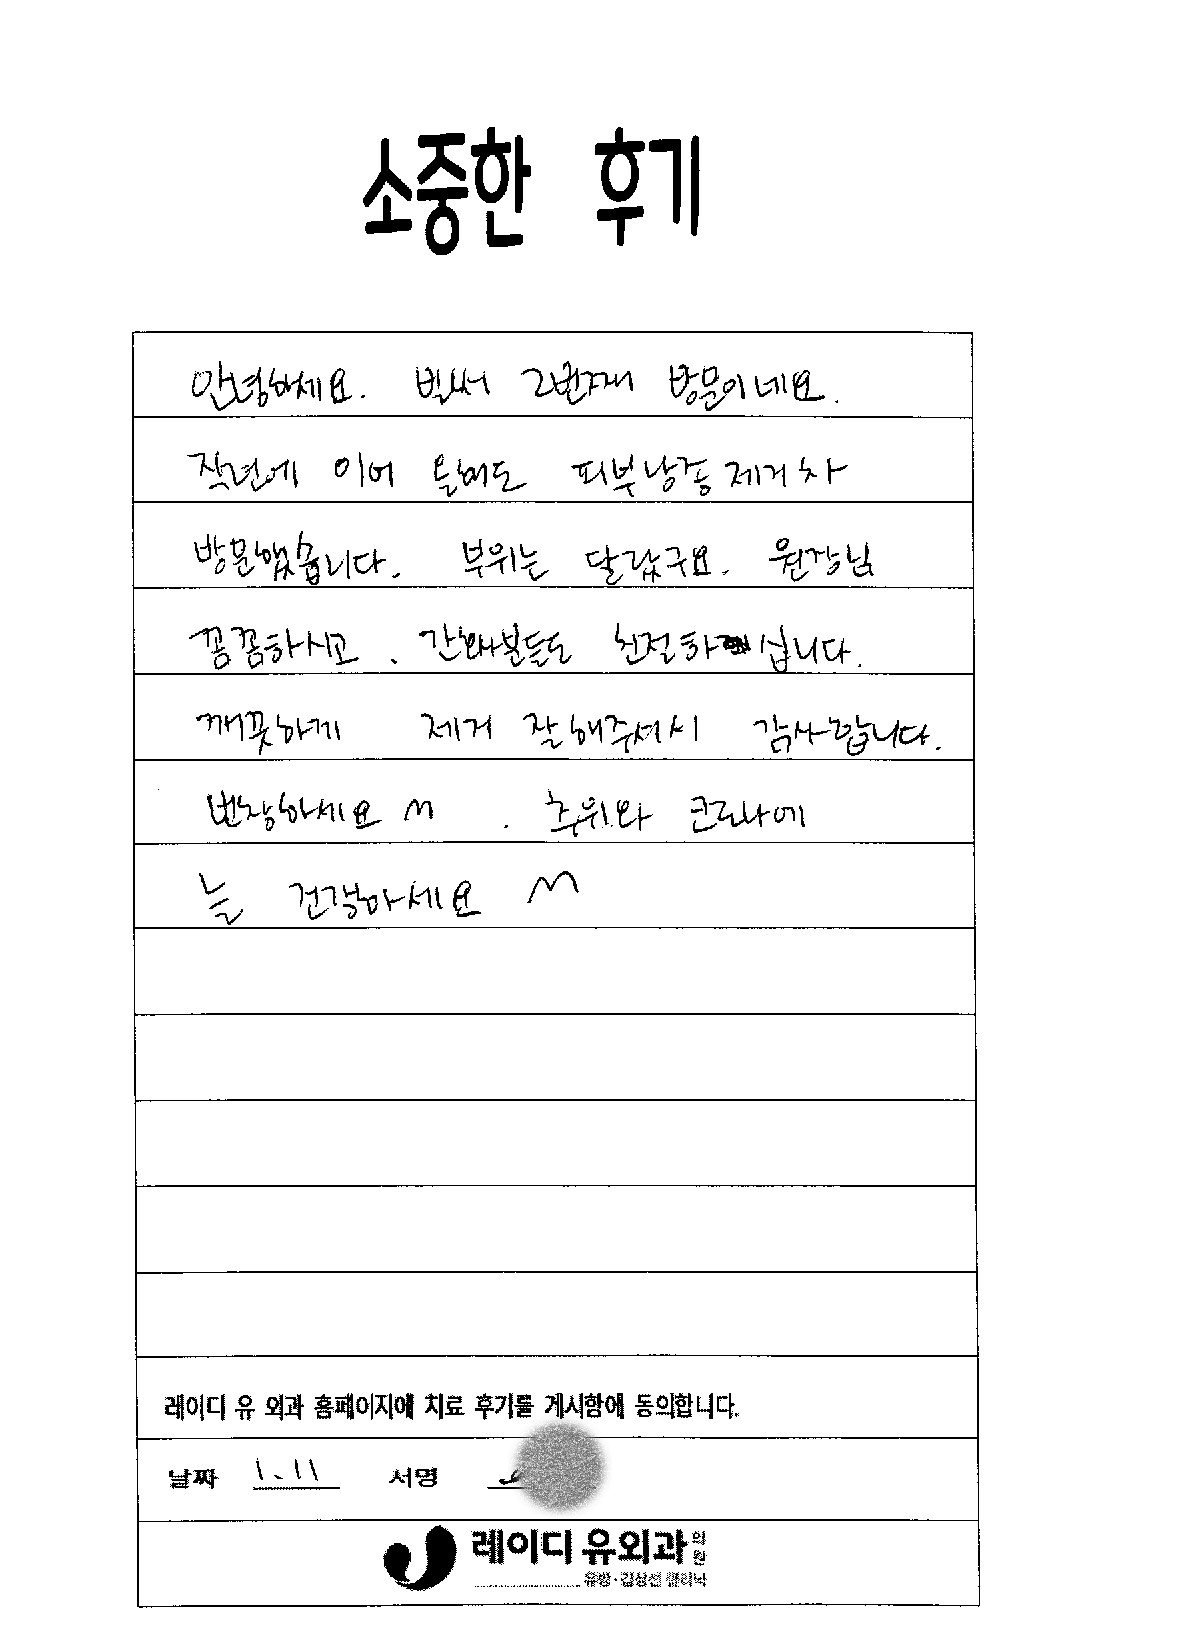 소중한 후기
안녕하세요. 벌써 2번째 방문이네요.
작년에 이어 올해도 피부낭종 제거차
방문했습니다. 부위는 달랐구요. 원장님
꼼꼼하시고, 간호사분들도 친절하십니다.
깨끗하게 제거 잘 해주셔서 감사합니다.
번창하세요 ㅆ. 추위와 코로나에
늘 건강하세요
레이디 유 외과 홈페이지에 치료 후기를 게시함에 동의합니다.
날짜 1.11 서명
레이디유외과의원
유방·갑상선 클리닉